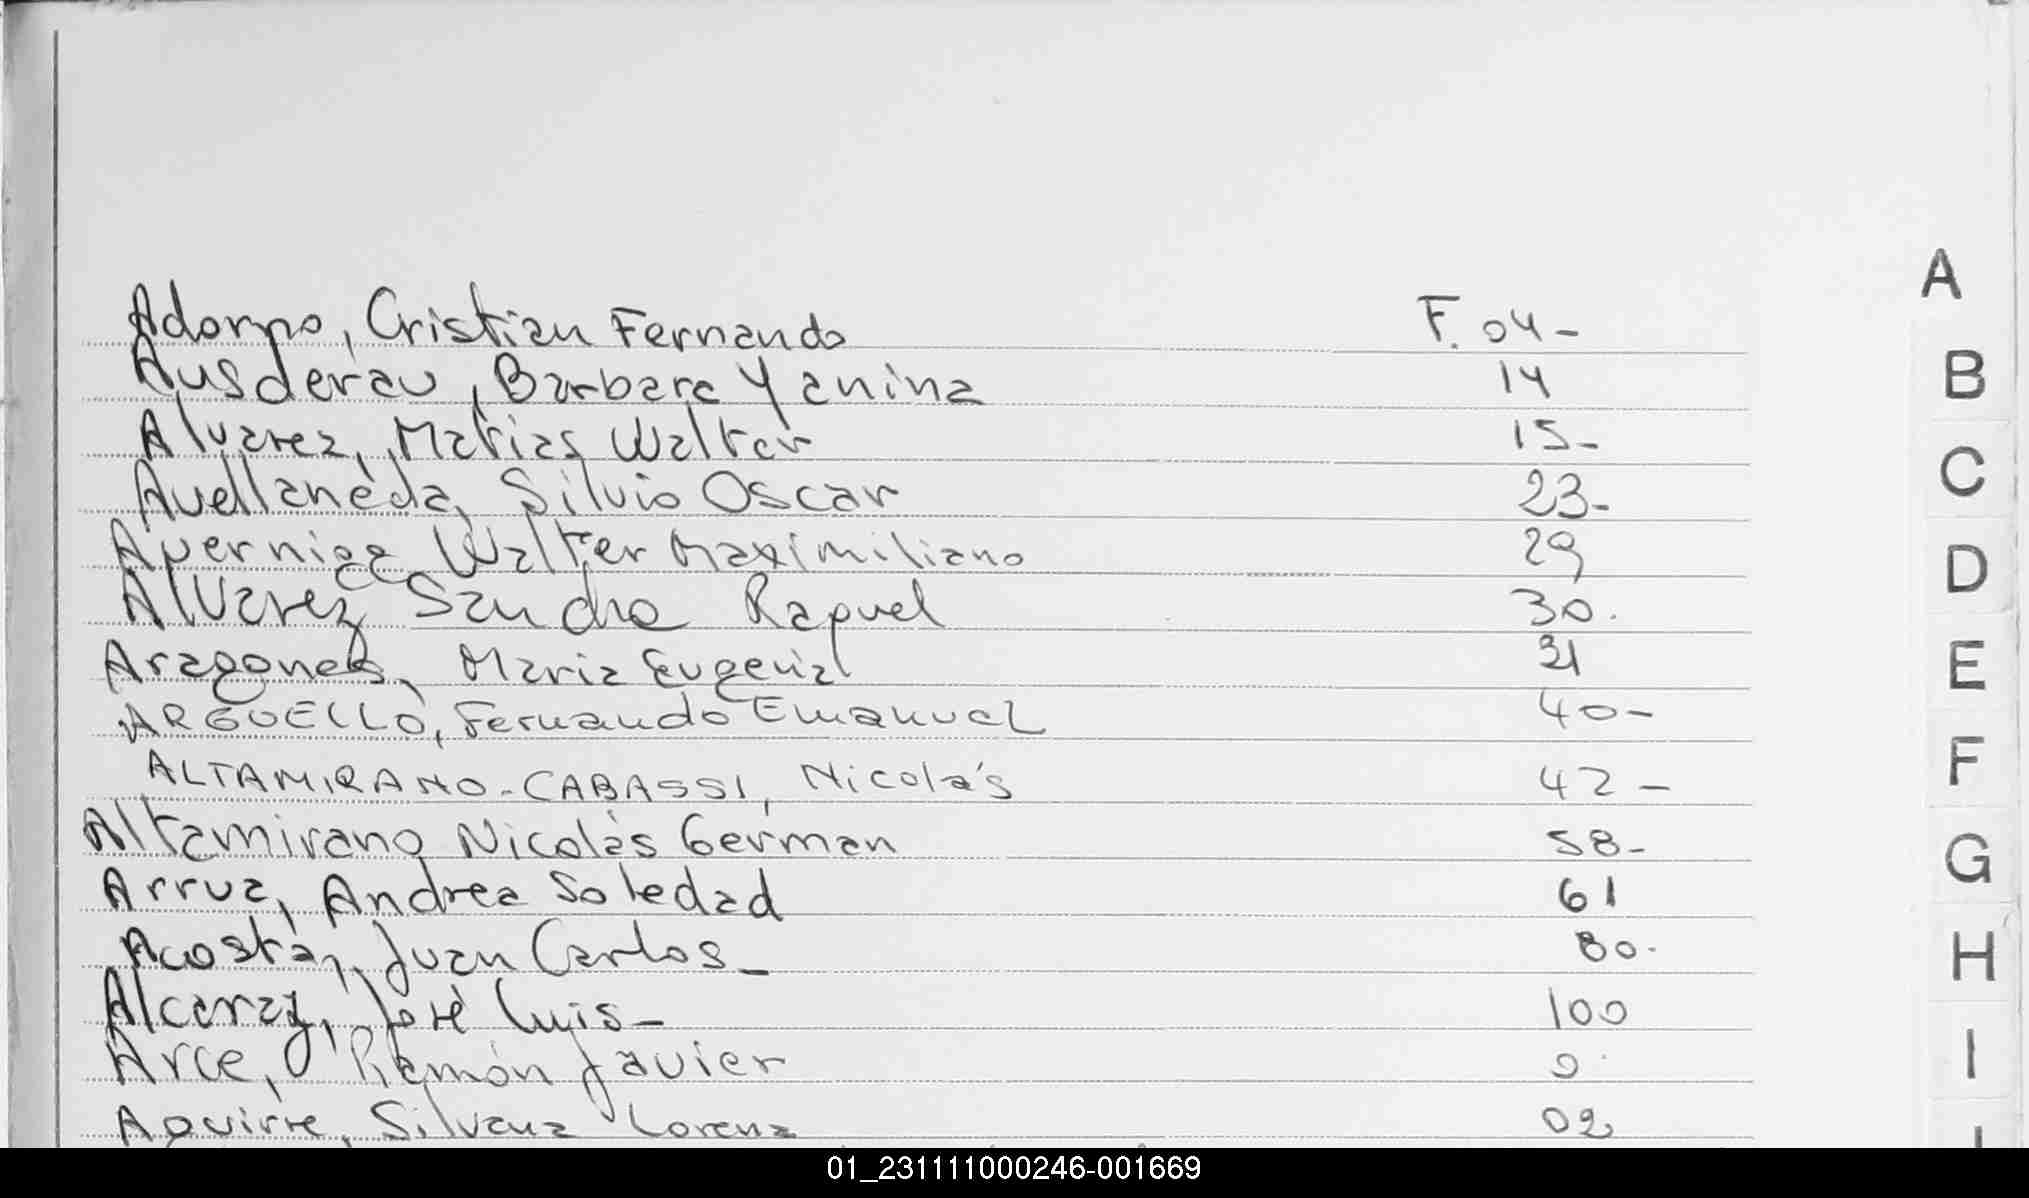 Adorno, Cristian Fernando F. 04-
Ausderau, Barbara Yanina 14
Alvarez, Matias Walter 15-
Avellaneda, Silvio Oscar 23-
Walter Maximiliano 29
Alvarez Sandra Raquel 30.
Aragones, Maria Eugenia 31
ARGUELLO, Fernando Emanuel 40-
ALTAMIRANO-CABASSI, Nicolás 42-
Altamirano Nicolás German 58-
Arrua, Andrea Soledad 61
Acosta, Juan Carlos- 80-
Alcaraz, José Luis- 100
Arce, Ramón Javier
Aguirre, Silvana Lorena 02
A
B
C
D
E
F
G
H
I
01_231111000246-001669